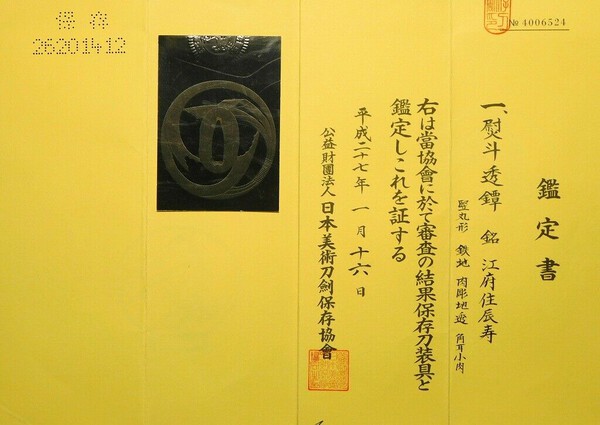 鑑定書
一、熨斗透鐔 銘 江府住辰寿
竪丸形 鉄地 肉彫地透 角耳小肉
右は當協會に於て審査の結果保存刀装具と
鑑定しこれを証する
平成二十七年 一月 十六日
公益財團法人 日本美術刀劍保存協會
№ 4006524
保存
26201412